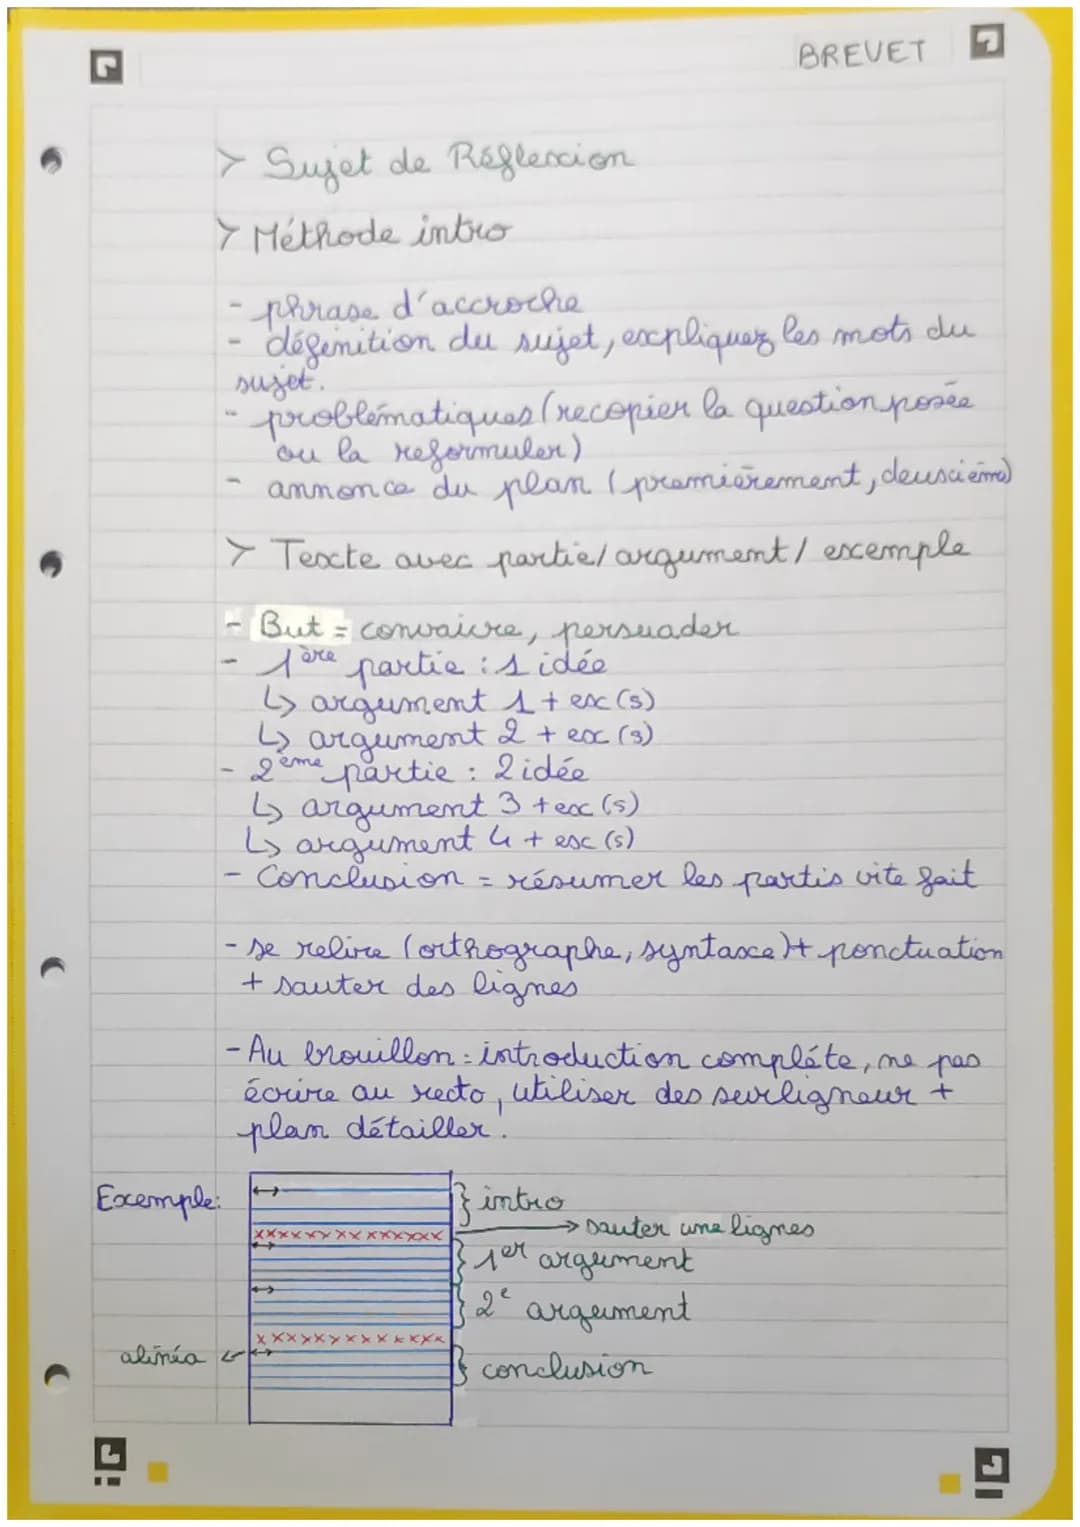 BREVET
> Sujet de Réflexion
> Méthode intro
- phrase d'accroche
- définition du sujet, expliquez les mots du
sujet.
- problématiques (recopier la question posée
ou la reformuler)
- annonce du plan (premièrement, deuxième)
> Texte avec partie/argument/ exemple
- But = convaicre, persuader
- 1ère partie : 1 idée
↳ argument 1 + ex(s)
↳ argument 2 + ex(s)
- 2ème partie : 2 idée
↳ argument 3 + ex(s)
↳ argument 4 + ex(s)
- Conclusion = résumer les partis vite fait
- se relire (orthographe, syntaxe) + ponctuation
+ sauter des lignes
- Au brouillon : introduction compléte, ne pas
écrire au recto, utiliser des surligneur +
plan détailler.
Exemple:
intro
→ sauter une lignes
1er argument
2e argument
alinéa
conclusion